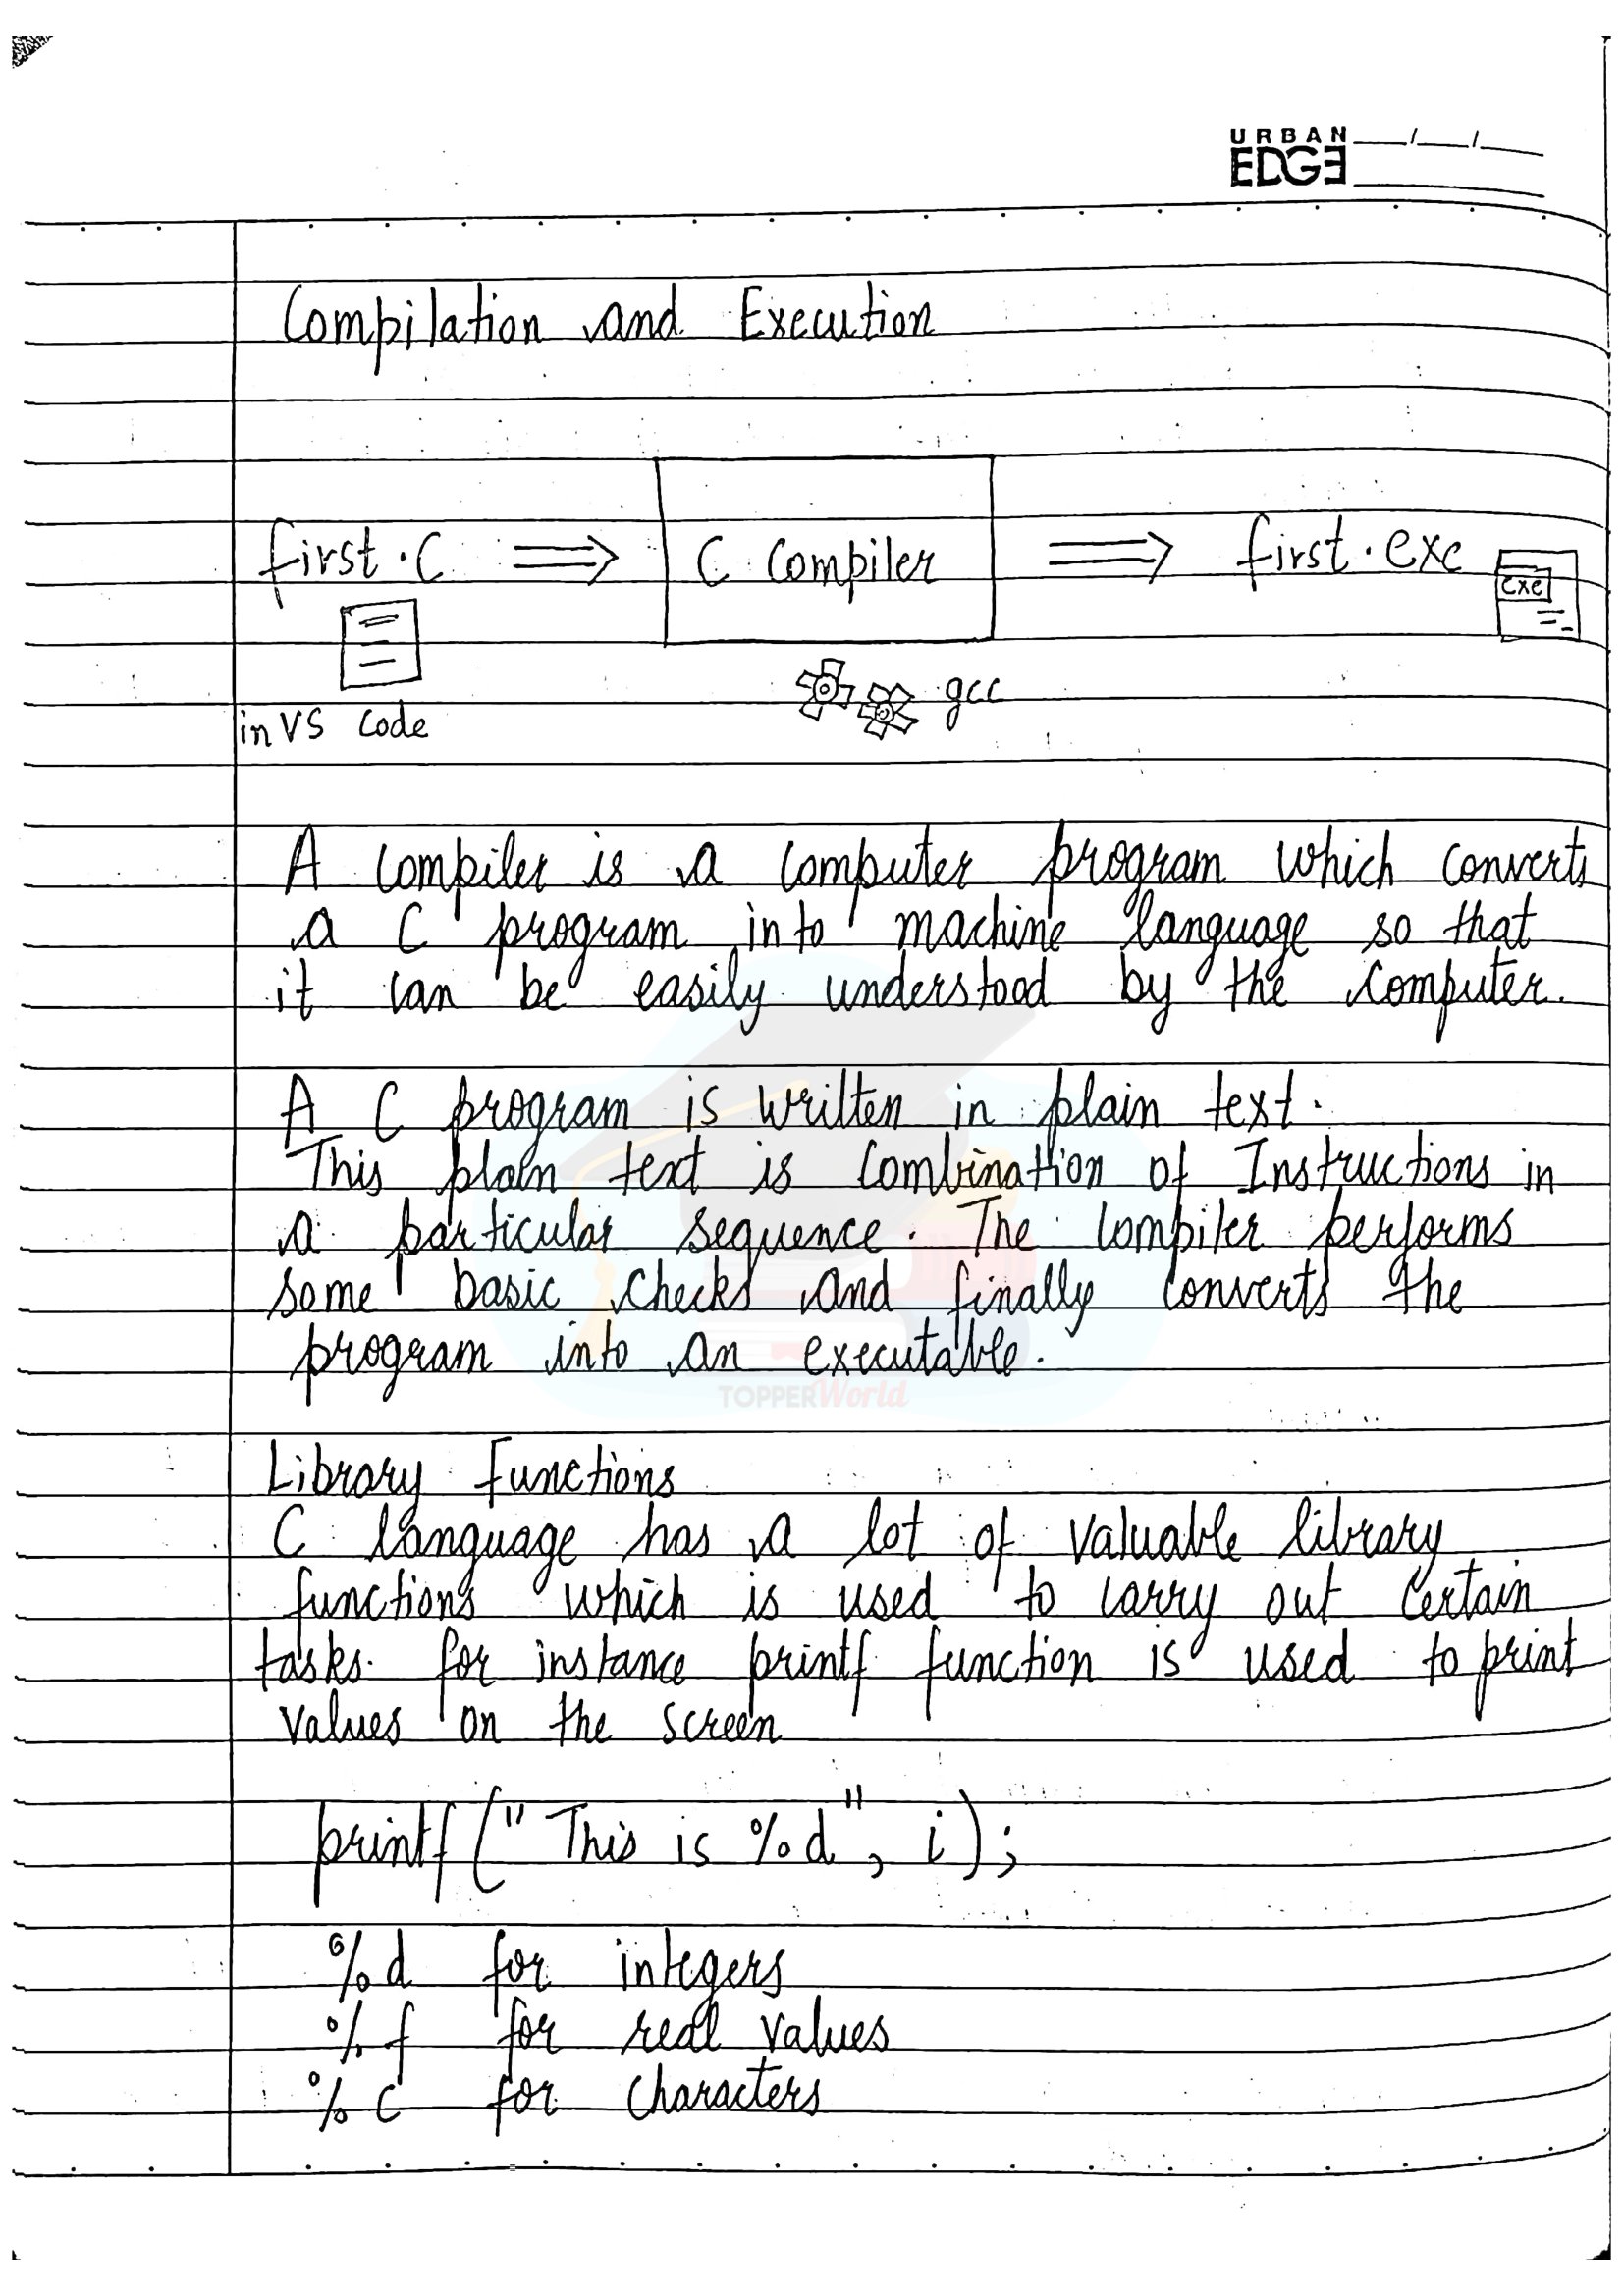 URBAN
EDGE
Compilation and Execution
first.C ⇒ C Compiler ⇒ first.exe
exe
gcc
in VS Code
A compiler is a computer program which converts
a C program into machine language so that
it can be easily understood by the computer.
A C program is written in plain text.
This plain text is combination of Instructions in
a particular sequence. The compiler performs
some basic checks and finally converts the
program into an executable.
TOPPERWorld
Library Functions
C language has a lot of valuable library
functions which is used to carry out certain
tasks. for instance printf function is used to print
values on the screen
printf("This is %d", i);
%d for integers
%f for real values
%c for characters